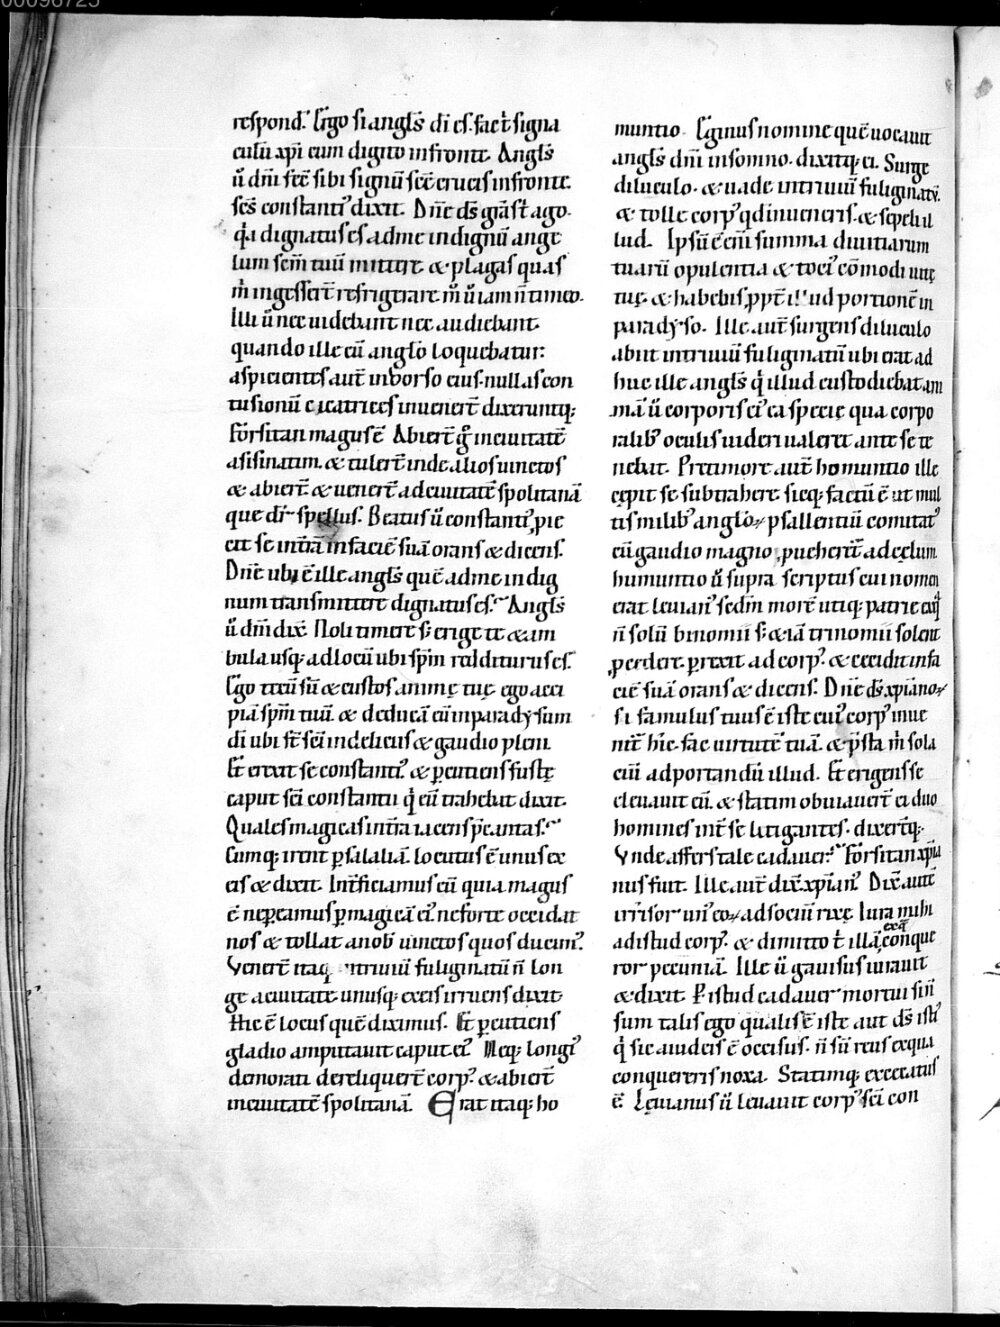 00096725
respond̄. Ergo si angl̄s d̄i es. fac t̄ signa
culū xp̄i cum digito in fronte. Angl̄s
ū dn̄i fec̄ sibi signū sc̄e crucis in fronte.
sc̄s constanti᷒ dixit. Dn̄e d̄s grā̄s t̄ ago.
q̄a dignatus es ad me indignū ange
lum sc̄m tuū mittere & plagas quas
m̄ ingesser̄t refrigerare. m̄ ū iam n̄ timeo.
Illi ū nec uidebant nec audiebant.
quando ille cū anglō loquebatur:
aspicientes aut̄ in dorso eius. nullas con
tusionū cicatrices inuener̄t dixeruntq;
Forsitan magus ē. Abier̄t g̊ in ciuitatē
asisinatim. & tuler̄t inde alios uinctos
& abier̄t & uener̄t ad ciuitatē spolitanā
que dr̄ spellus. Beatus ū constanti᷒ ꝓie
cit se in tr̄ā in faciē suā orans & dicens.
Dn̄e ubi ē ille angl̄s quē ad me indig
num transmittere dignatus es. Angl̄s
ū dn̄i dix̄. Noli timere s; erige te & am
bula usq; ad locū ubi sp̄m redditurus es.
Ego tecū sū & custos animę tuę. ego acci
piā sp̄m tuū. & deducā eū in paradysum
d̄i ubi st̄ sc̄i in deliciis & gaudio pleni.
Et erexit se constanti᷒. & ꝑcutiens fustę
caput sc̄i constantii q̄ eū trahebat dixit.
Quales magicas in tr̄a iacens ꝑcantas.
Cumq; irent ꝑ salaliā. locutus ē unus ex
eis & dixit. Intficiamus eū quia magus
ē ne ꝑeamus ꝑ magicā ei᷒ ne forte occidat
nos & tollat a nob̄ uinctos quos ducim᷒.
Venert̄ itaq; in triuiū fuliginatū n̄ lon
ge a ciuitate unusq; ex eis irruens dixit
Hic ē locus quē diximus. Et ꝑcutiens
gladio amputauit caput ei᷒. Neq; longi᷒
demorati derelinquer̄t corp᷒. & abier̄t
in ciuitatē spolitanā. Erat itaq; ho
muntio. Eginus nomine quē uocauit
angl̄s dn̄i in somno. dixitq; ei. Surge
diluculo. & uade in triuiū fuliginatū.
& tolle corp᷒ qd inueneris. & sepeli il
lud. Ipsū ē eni summa diuitiarum
tuarū opulentia & toci᷒ cōmodi uitę
tuę. & habebis ꝓpt illud portionē in
paradyso. Ille aut̄ surgens diluculo
abiit in triuiū fuliginatū ubi erat ad
huc ille angl̄s q̄ illud custodiebat ani
mā ū corporis ei᷒ ea specie qua corpo
ralib᷒ oculis uideri ualeret ante se te
nebat. Pre timore aut̄ homuntio ille
cępit se subtrahere. sicq; factū ē ut mul
tis milib᷒ anglo℞ psallentiū comitat᷒
cū gaudio magno ꝓueher&̄ ad cęlum.
humuntio ū supra scriptus cui nomen
erat leuian᷒ sedm morē utiq; patrie
n̄ solū binomii s; & iā trinomii solent
ꝓcedere. perrexit ad corp᷒. & cecidit in fa
ciē suā orans & dicens. Dn̄e d̄s xp̄iano℞
si famulus tuus ē iste cui᷒ corp᷒ inue
nit̄ hic. fac uirtutē tuā. & p̄sta m̄ sola
ciū ad portandū illud. Et erigens se
eleuauit eū. & statim obuiauer̄t ei duo
homines int̄ se litigantes. dixert̄q;.
Vnde affers tale cadauer? Forsitan xp̄ia
nus fuit. Ille aut̄ dix̄. xp̄ian᷒. Dix̄ autē
irrisor un᷒ eo℞ ad sociū rixę. Iura mihi
ad istud corp᷒. & dimitto t̄ illā ex q̄ conque
ror pecuniā. Ille ū gauisus iurauit
& dixit. P istud cadauer mortui sin
sum talis ego qualis ē iste aut d̄s isti᷒
q̄ sic a iudeis ē occisus. n̄ sū reus ex qua
conquereris noxa. Statimq; execratus
ē. Lęuianus ū leuauit corp᷒ sc̄i con